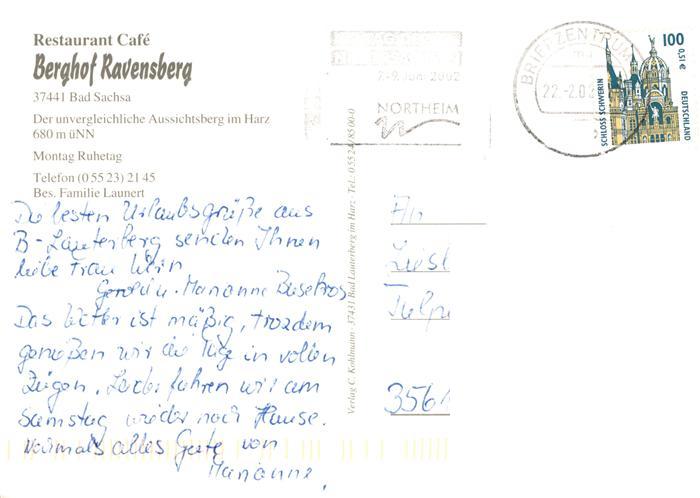 Restaurant Café
Berghof Ravensberg
37441 Bad Sachsa
Der unvergleichliche Aussichtsberg im Harz
680 m üNN
Montag Ruhetag
Telefon (0 55 23) 21 45
Bes. Familie Launert
Die besten Urlaubsgrüße aus
B-Lauterberg senden Ihnen
liebe Frau
u. Marianne
Das Wetter ist mäßig, trozdem
genießen wir die Tage in vollen
Zügen. Leider fahren wir am
Samstag wieder nach Hause.
Nochmals alles Gute von
Marianne.
Verlag C. Kohlmann · 37431 Bad Lauterberg im Harz · Tel.: 0 55 24/
2.-9. Juni 2002
NORTHEIM
BRIEFZENTRUM
22.-2.0
100
0,51 €
SCHLOSS SCHWERIN
DEUTSCHLAND
An
3561